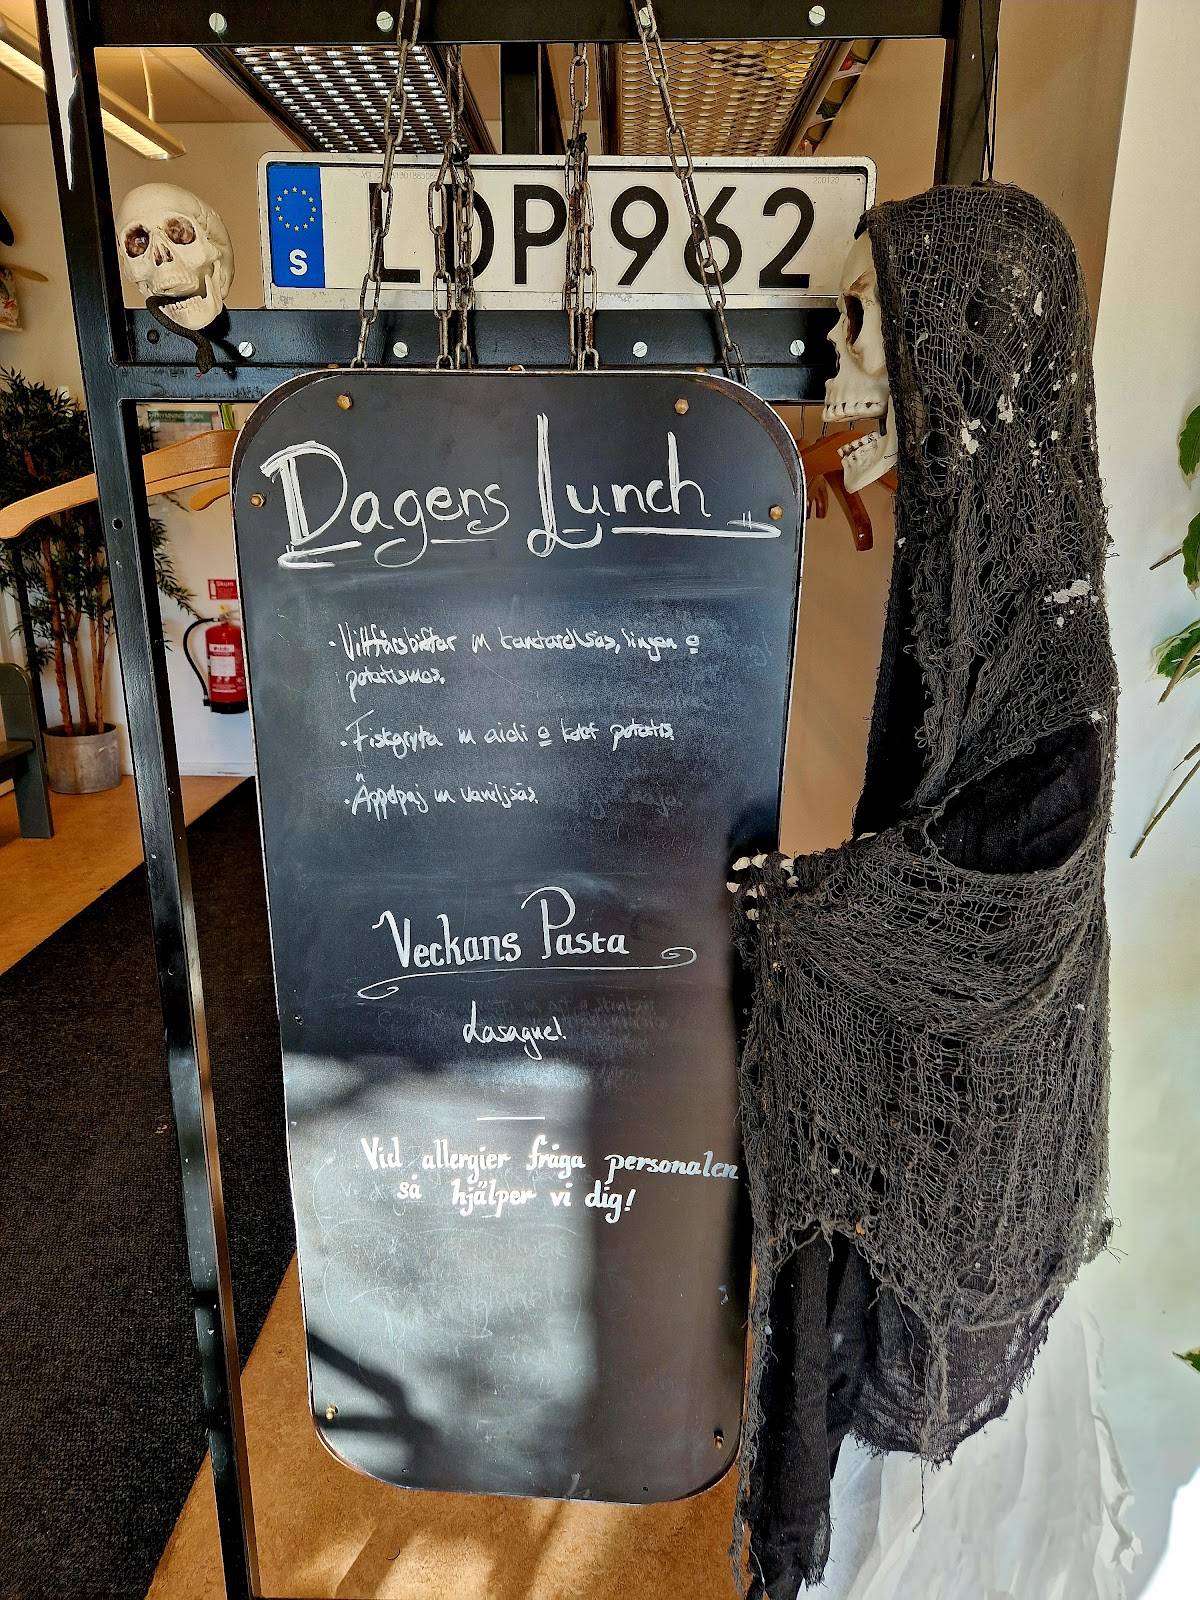 S LDP 962
200120
Dagens Lunch
· Viltfärsbiffar m kantarellsås, lingon o
potatismos.
· Fiskgryta m aioli o kokt potatis
· Äppelpaj m vaniljsås.
Veckans Pasta
Lasagne!
Vid allergier fråga personalen
så hjälper vi dig!
Skum